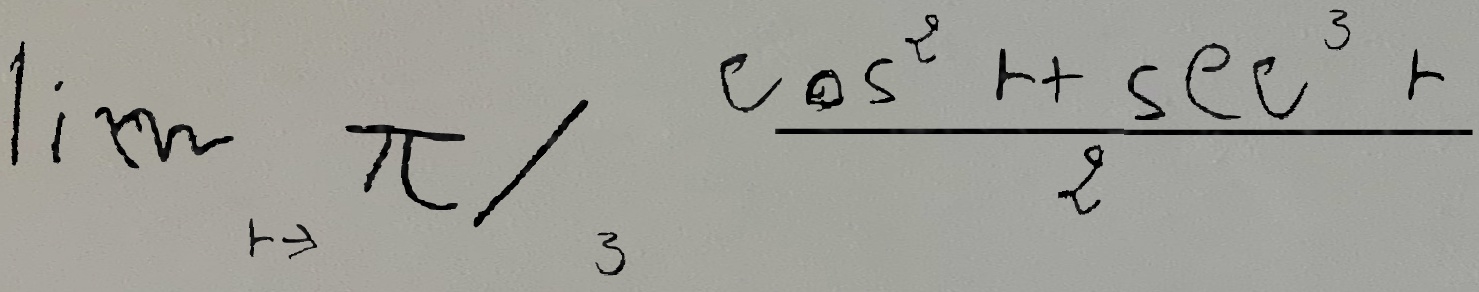 lim r→ π/3 cos² r + sec³ r / 2